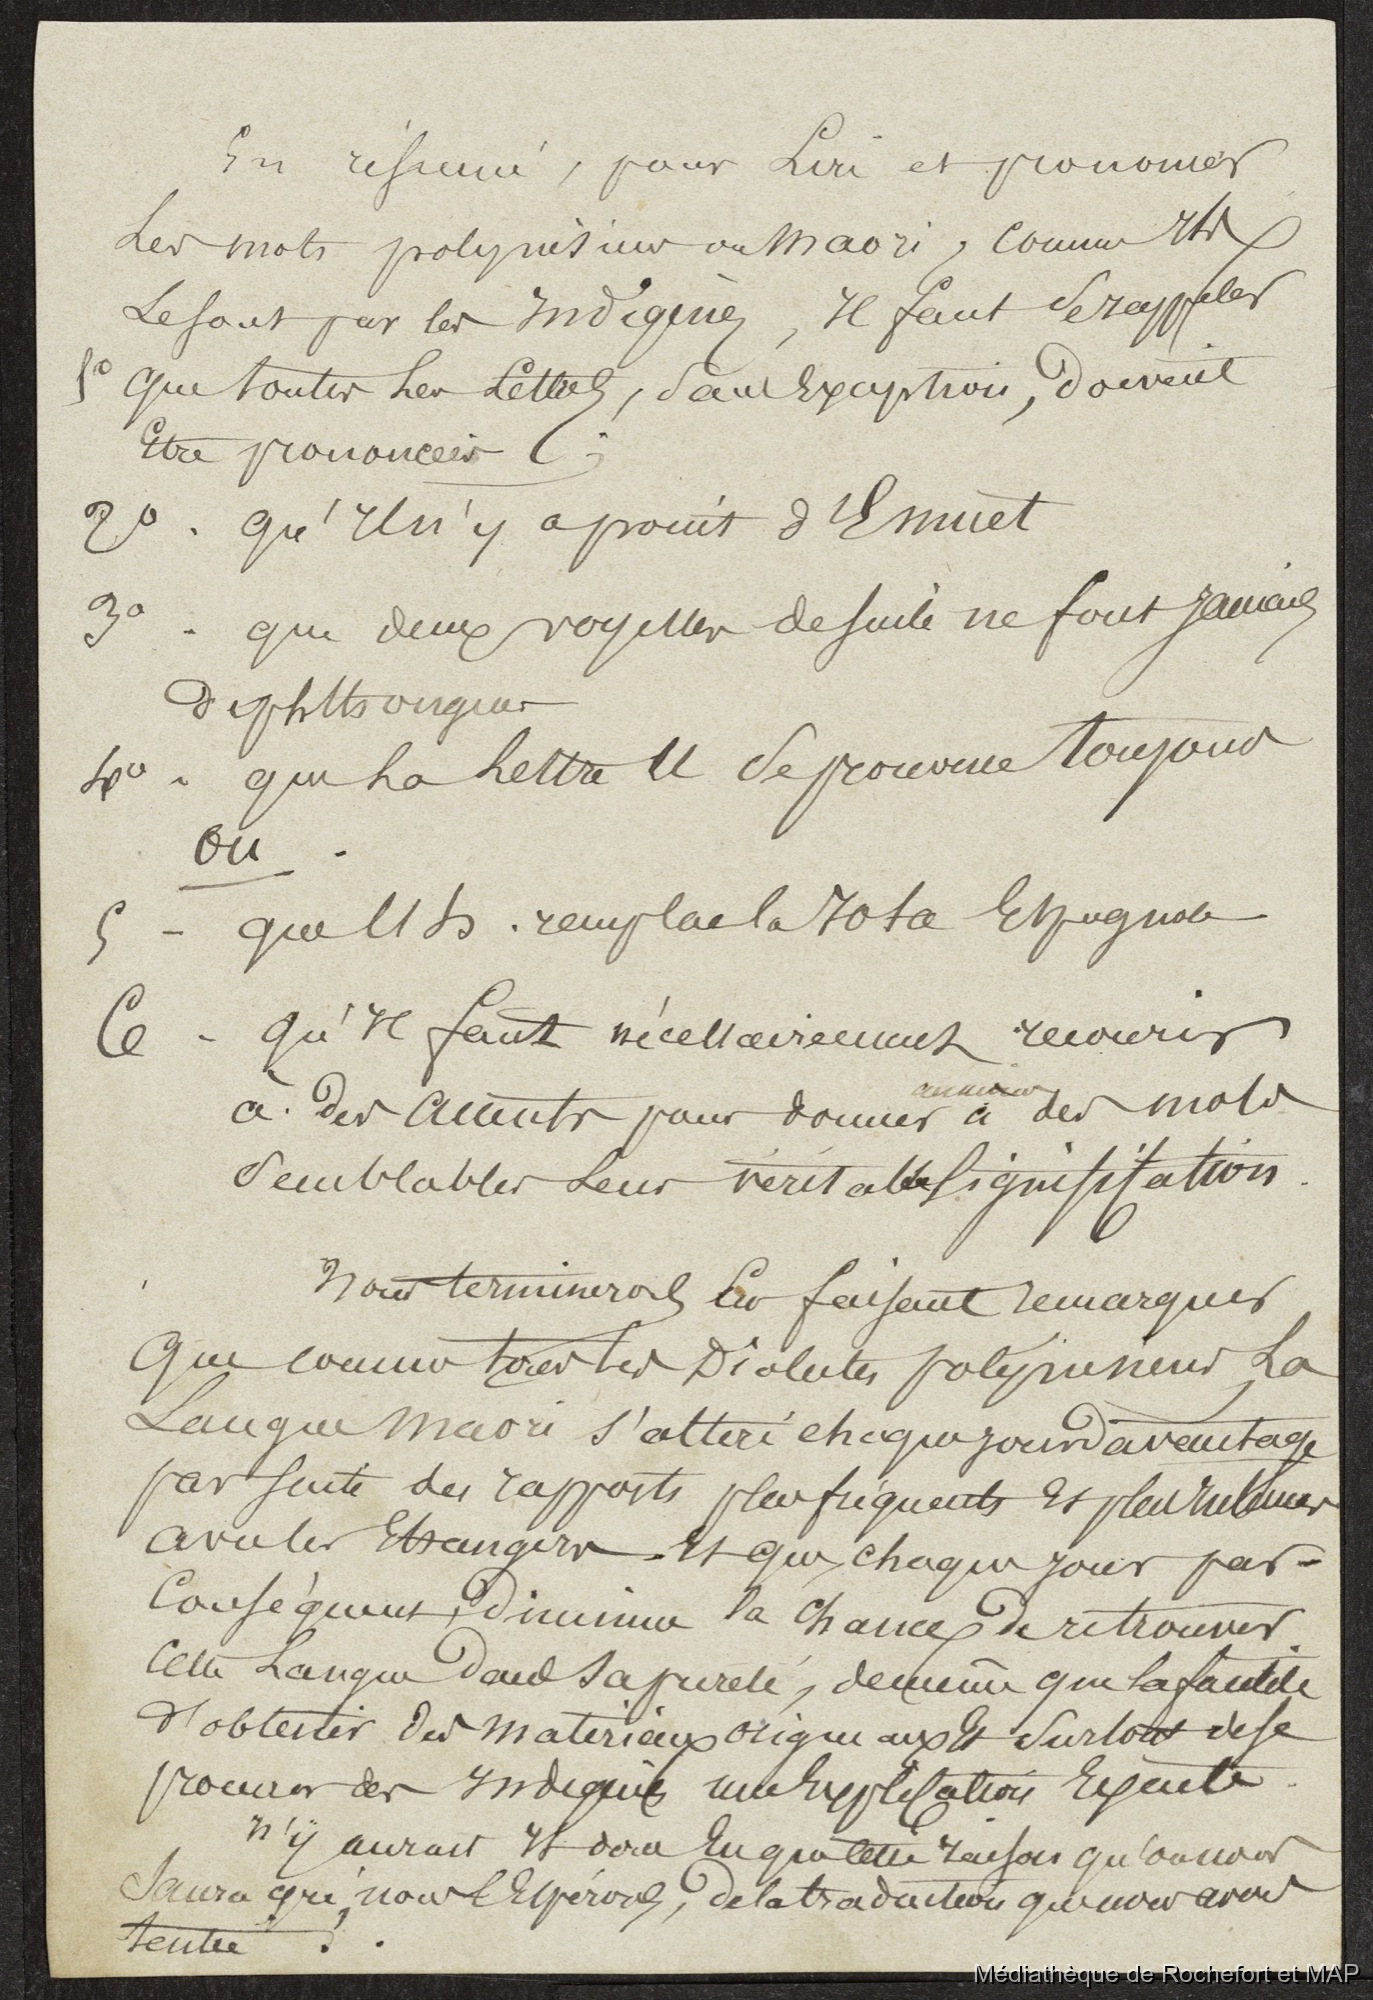 En résumé, pour Lire et prononcer
Les mots polynésiens ou Maori, comme Ils
Le sont par les Indigènes, Il faut se rappeler
1º que toutes Les Lettres, sans Exception, doivent
Etre prononcées ;
2º. qu'Il n'y a point d'E muet
3º. que deux voyelles de suite ne font jamais
diphthongues
4º. que La Lettre U se prononce toujours
ou.
5 - que l'H. remplace la Jota Espagnole
6 - qu'Il faut nécessairement recourir
à des accents pour donner à des mots
semblables Leur véritable Signification.
Nous terminerons En faisant remarquer
que comme tous Les Dialectes polynésiens La
Langue Maori s'altère chaque jour davantage
par suite des rapports plus fréquents Et plus Intimes
avec les Etrangers - Et que, chaque jour par-
Conséquent, diminue la chance de retrouver
cette Langue dans sa pureté, de même que la faculté
d'obtenir des Matériaux originaux Et surtout de se
procurer des Indigènes une Explication Exacte.
n'y aurait Il donc En que cette raison qu'on nous
Saura gré, nous l'Espérons, de la traduction que nous avons
tentée !.
Médiathèque de Rochefort et MAP